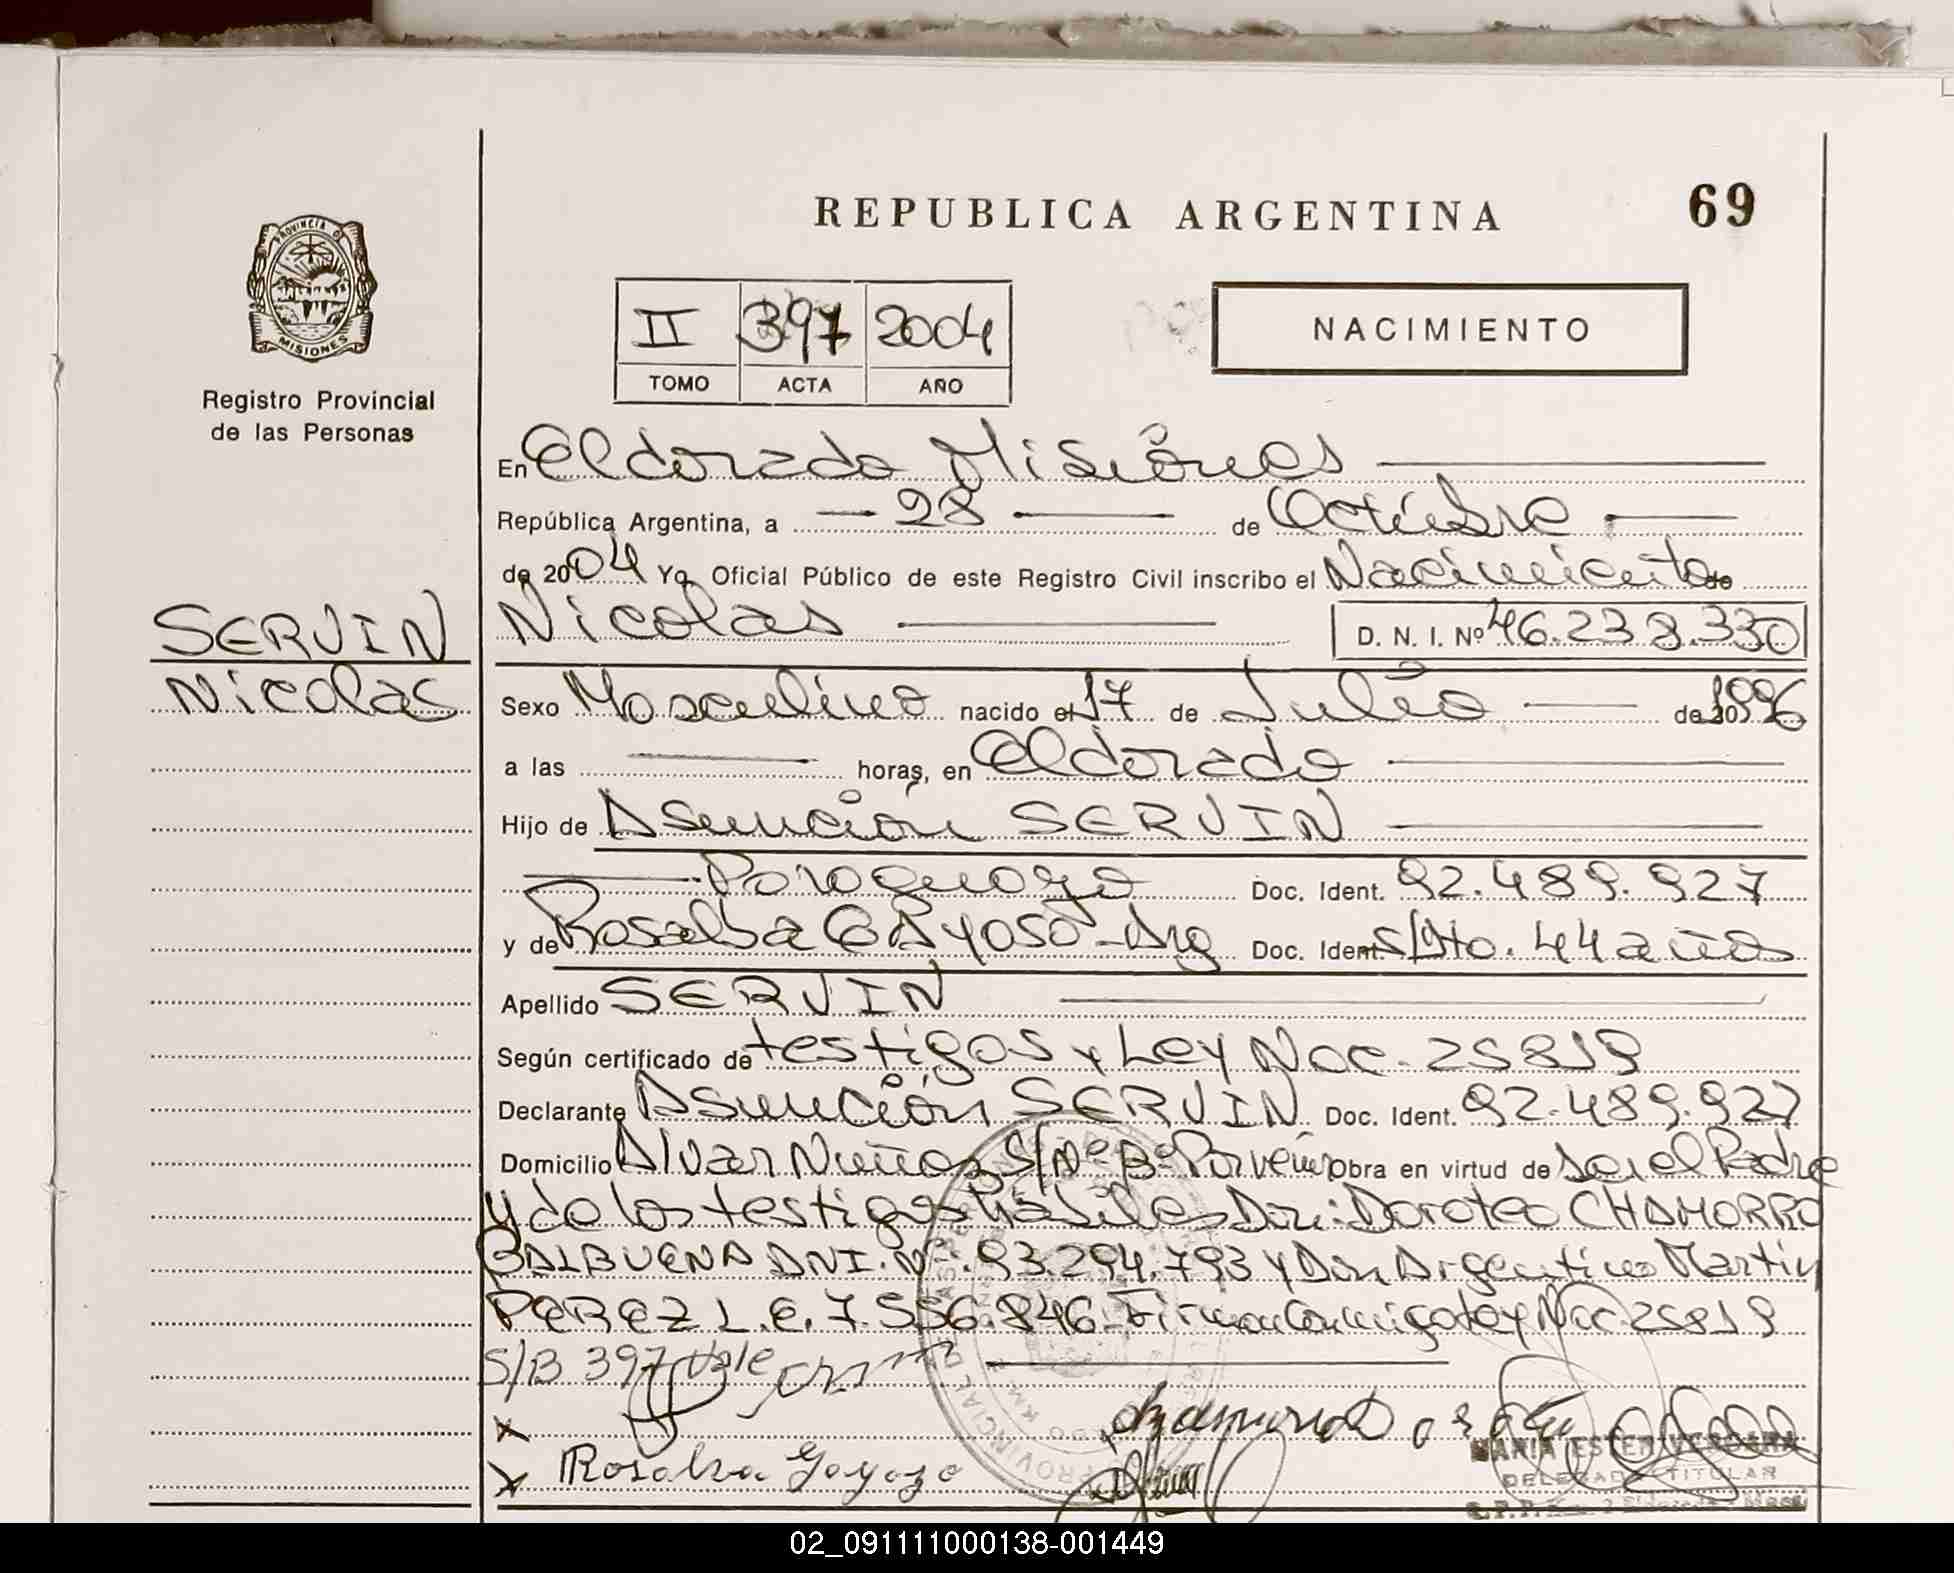 REPUBLICA ARGENTINA
69
PROVINCIA DE
MISIONES
Registro Provincial
de las Personas
II 397 2004
TOMO ACTA AÑO
NACIMIENTO
En Eldorado Misiónes
República Argentina, a 28 de Octubre
de 2004 Yo, Oficial Público de este Registro Civil inscribo el Nacimiento de
SERVIN
Nicolas
Nicolas D. N. I. Nº 46.238.330
Sexo Masculino nacido el 17 de Julio de 1996
a las horas, en Eldorado
Hijo de Asunción SERVIN
Paraguaya Doc. Ident. 92.489.927
y de Rosalba GAYOSO - Arg Doc. Ident. S/Dto. 44 años
Apellido SERVIN
Según certificado de testigos y Ley Nac. 25819
Declarante Asunción SERVIN Doc. Ident. 92.489.927
Domicilio Alvar Nuñes S/Nº Bº Porvenir obra en virtud de ser el Padre
y de los testigos hábiles Don: Doroteo CHAMORRO
BALBUENA DNI. Nº 93.294.793 y Don Argentino Martin
PEREZ L.E. 7.556.846 Firman Conmigo Ley Nac. 25819
S/B 397 Vale
x
x Rosalva Gayozo
MARIA ESTER VERGARA
DELEGADA TITULAR
02_091111000138-001449